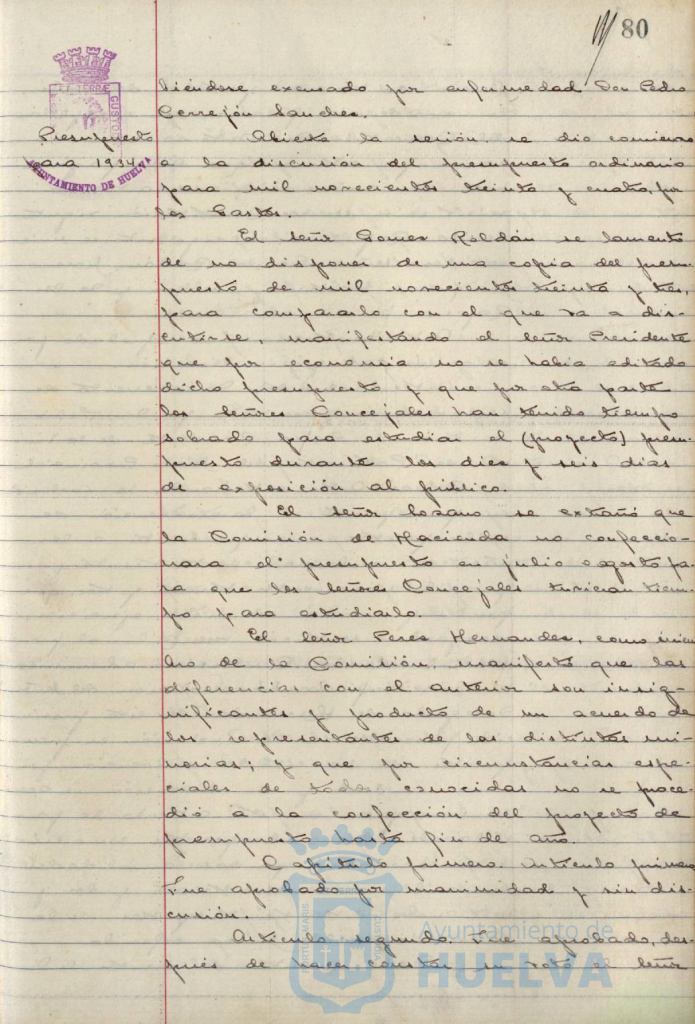 80
biéndose excusado por enfermedad Don Pedro
Cerrejón Sanchez.
Presupuesto
para 1934
AYUNTAMIENTO DE HUELVA
Abierta la sesión se dio comienzo
a la discusión del presupuesto ordinario
para mil novecientos treinta y cuatro, por
los Gastos.
El señor Gomez Roldán se lamentó
de no disponer de una copia del presu-
puesto de mil novecientos treinta y tres,
para compararlo con el que va a dis-
cutirse, manifestando el señor Presidente
que por economia no se habia editado
dicho presupuesto y que por otra parte
los señores Concejales han tenido tiempo
sobrado para estudiar el (proyecto) presu-
puesto durante los diez y seis dias
de exposición al público.
El señor Lozano se extrañó que
la Comisión de Hacienda no confeccio-
nara el presupuesto en julio o agosto pa-
ra que los señores Concejales tuvieran tiem-
po para estudiarlo.
El señor Perez Hernandez, como miem-
bro de la Comisión, manifestó que las
diferencias con el anterior son insig-
nificantes y producto de un acuerdo de
los representantes de las distintas mi-
norias; y que por circunstancias espe-
ciales de todos conocidas no se proce-
dió a la confección del proyecto de
presupuesto hasta fin de año.
Capitulo primero. Artículo primero
Fue aprobado por unanimidad y sin dis-
cusión.
Artículo segundo. Fue aprobado, des-
pués de hacer constar su voto el señor
Ayuntamiento de
HUELVA